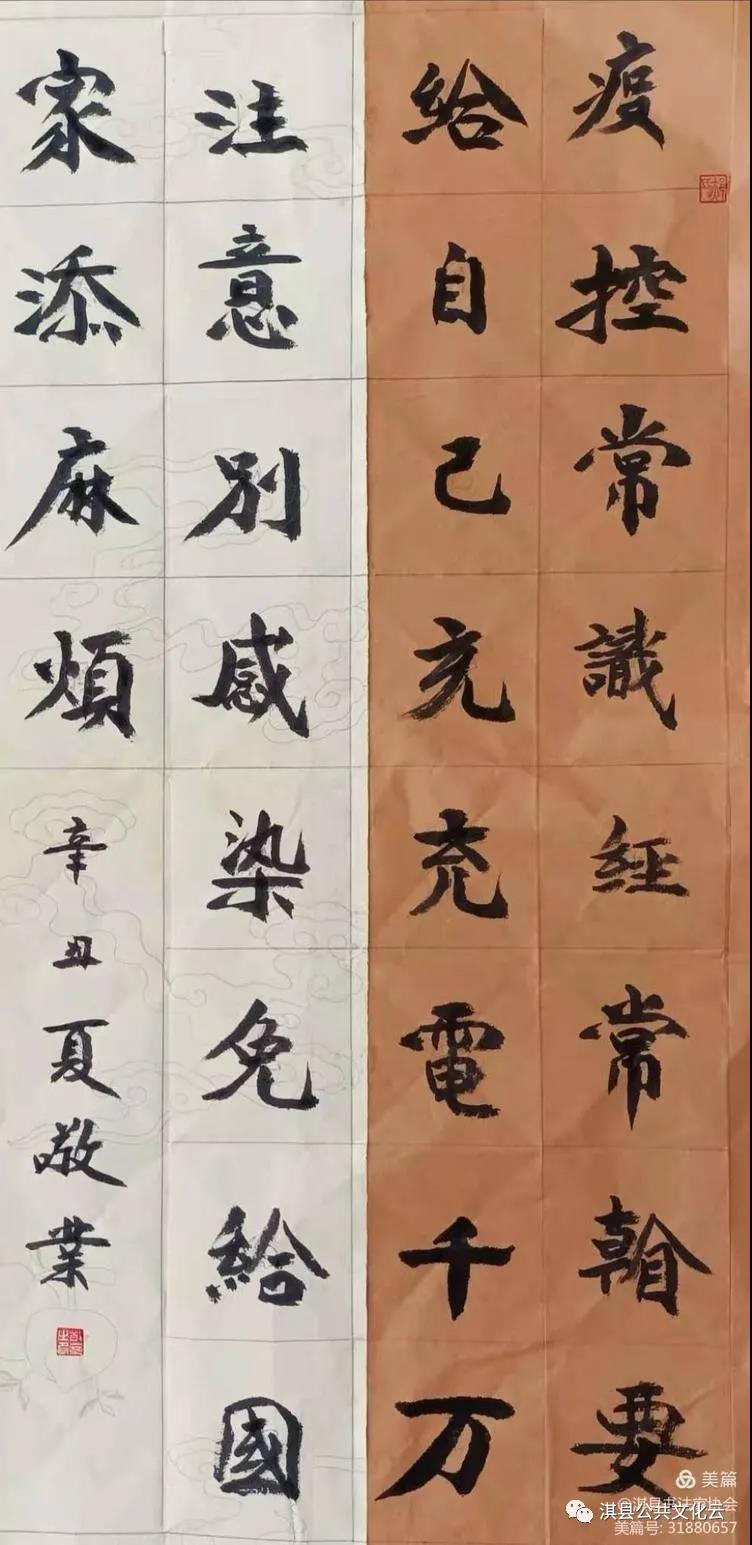 疫控常識經常要
給自己充充電千万
注意別感染免給國
家添麻煩
辛丑夏敬業
美篇
@淇县书法家协会
淇县公共文化云
美篇号: 31880657